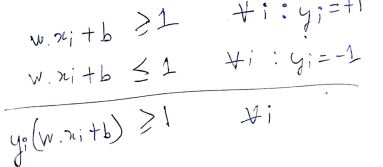 w.xi + b ≥ 1 ∀i : yi = +1
w.xi + b ≤ 1 ∀i : yi = -1
yi(w.xi+b) ≥ 1 ∀i